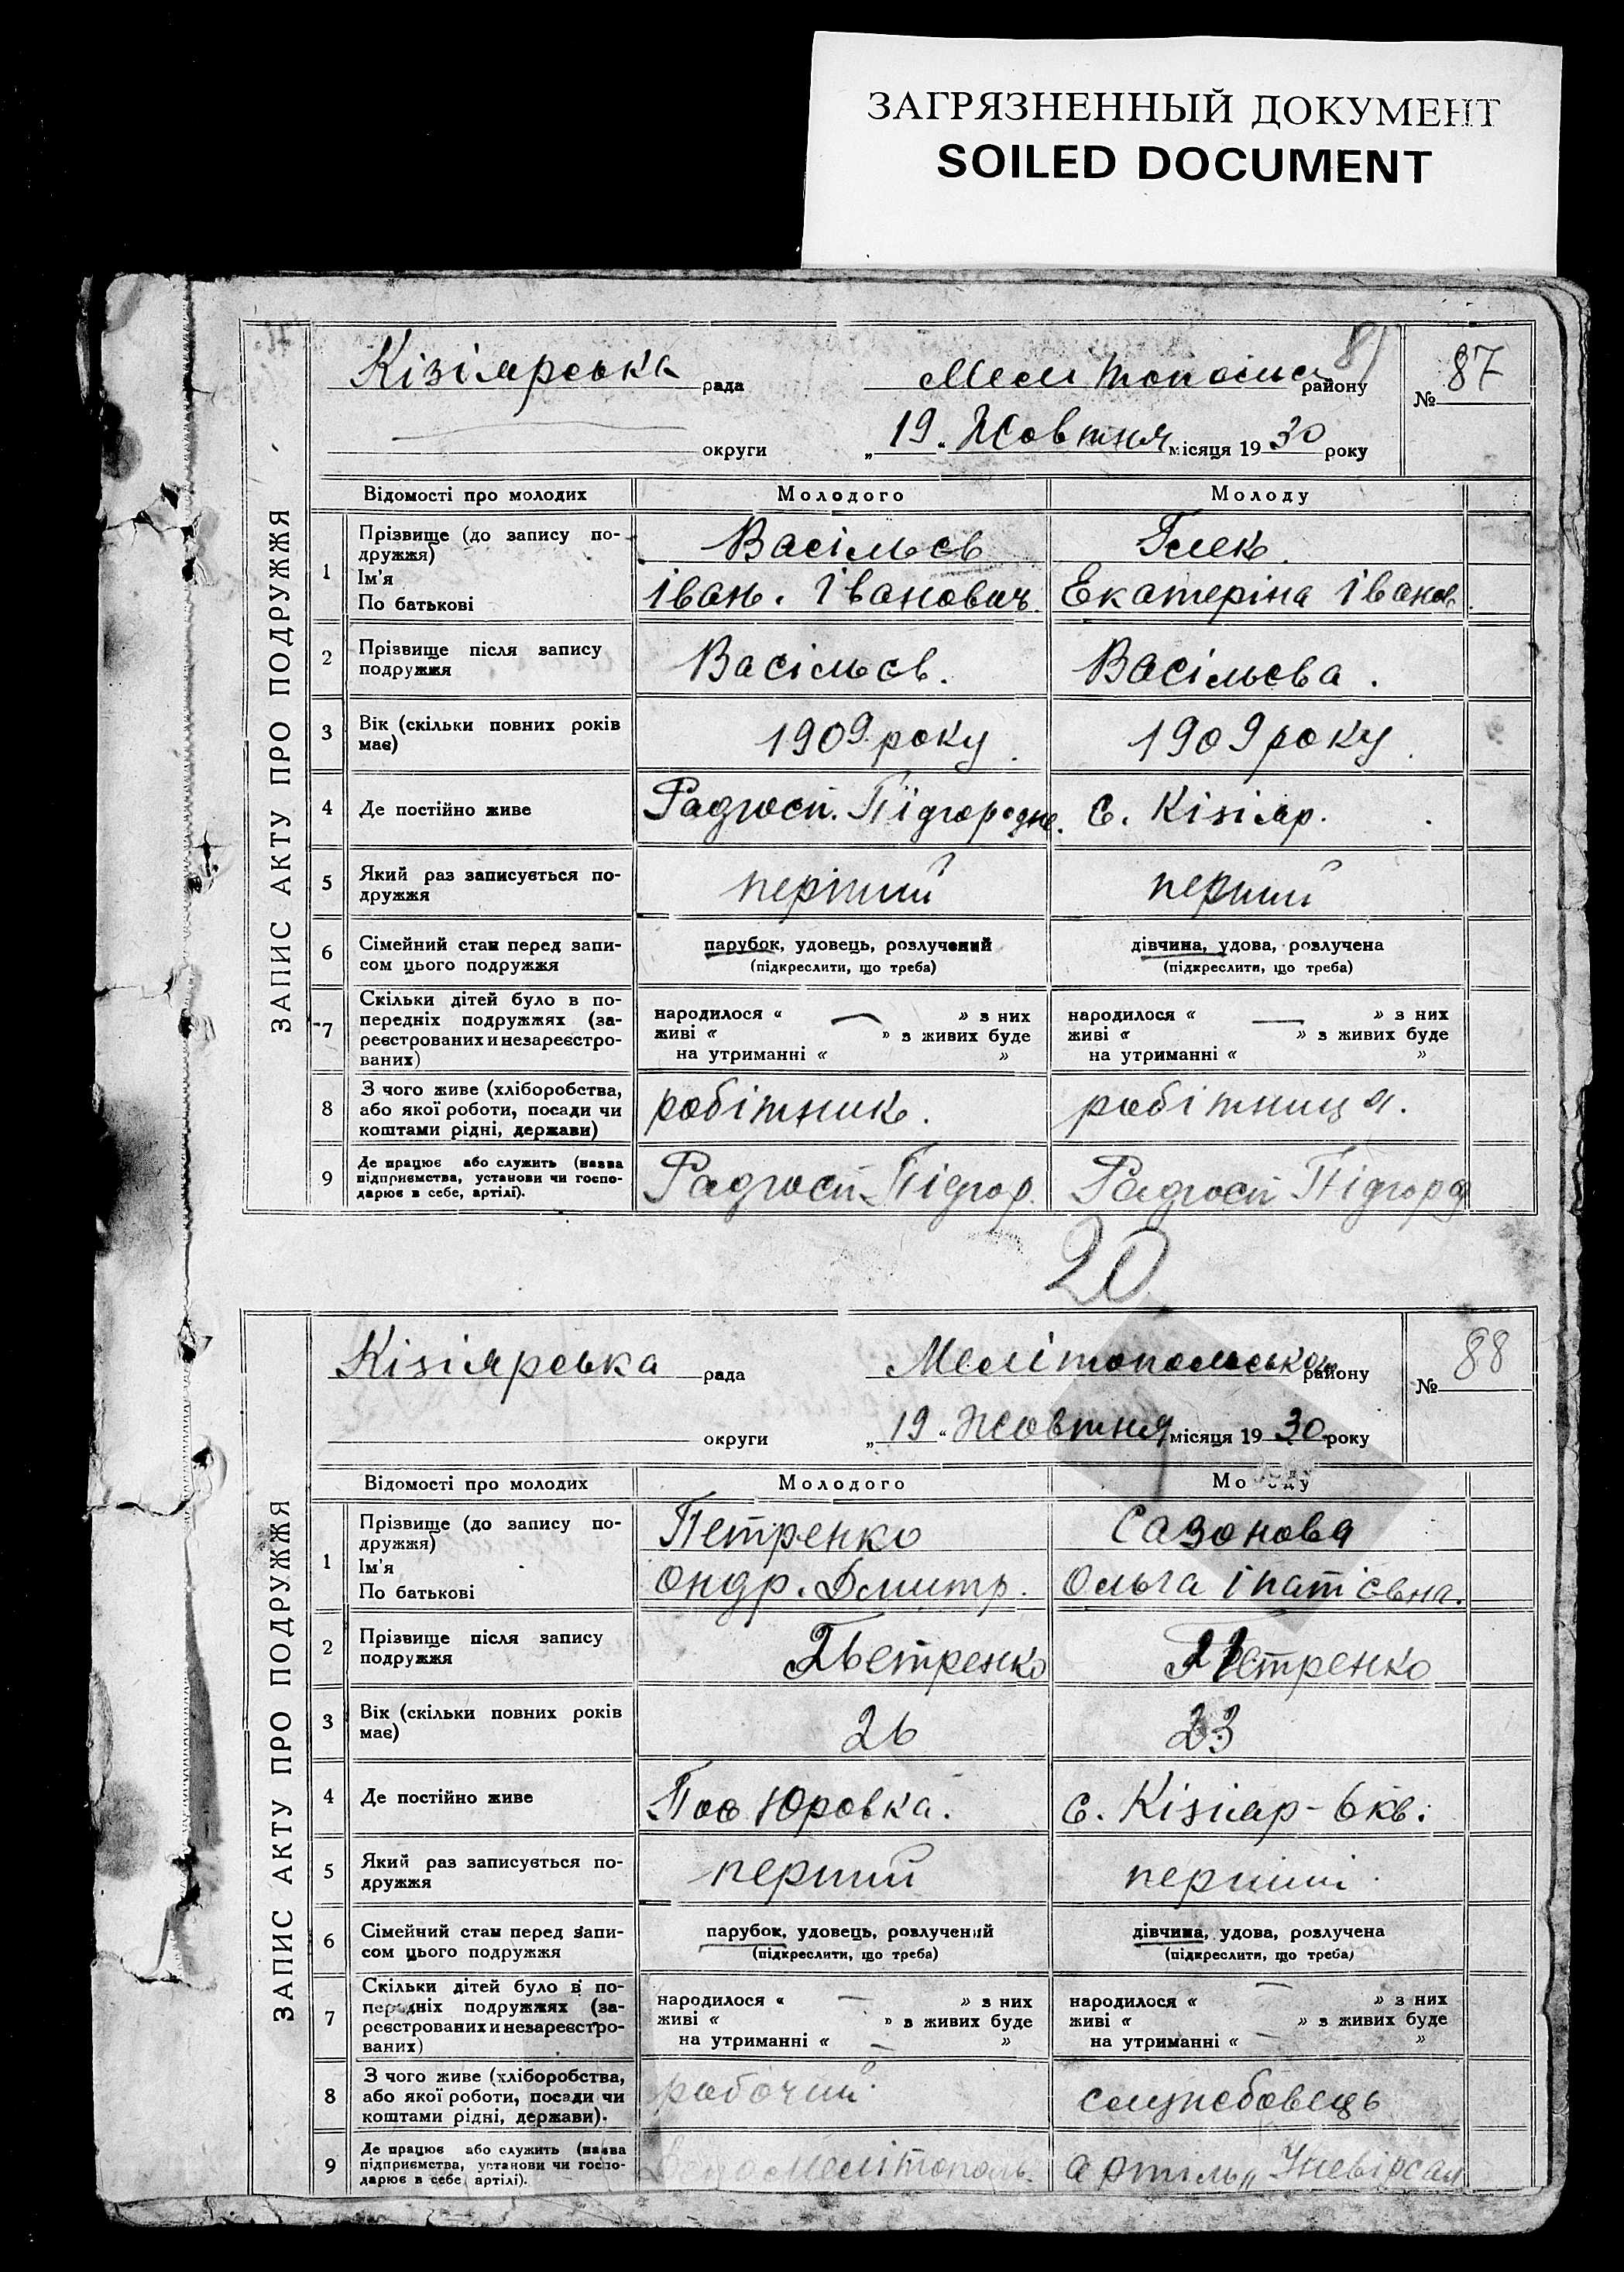 ЗАГРЯЗНЕННЫЙ ДОКУМЕНТ
SOILED DOCUMENT
ЗАПИС АКТУ ПРО ПОДРУЖЖЯ
Кізіярська рада району № 87
округи „19“ Жовтня місяця 1930 року
Відомості про молодих Молодого Молоду
1 Прізвище (до запису по-
дружжя) Васільєв
Ім'я
По батькові Івань. Іванович. Екатеріна Іванов.
2 Прізвище після запису
подружжя Васільєв. Васільєва.
3 Вік (скільки повних років
має) 1909 року. 1909 року.
4 Де постійно живе Радгосп. Підгородне. С. Кізіяр.
5 Який раз записується по-
дружжя перший перший
6 Сімейний стан перед запи-
сом цього подружжя
парубок, удовець, розлучений
(підкреслити, що треба)
дівчина, удова, розлучена
(підкреслити, що треба)
7 Скільки дітей було в по-
передніх подружжях (за-
реєстрованих и незареєстро-
ваних)
народилося “ — ” з них
живі “ ” з живих буде
на утриманні “ ”
народилося “ — ” з них
живі “ ” з живих буде
на утриманні “ ”
8 З чого живе (хліборобства,
або якої роботи, посади чи
коштами рідні, держави) робітникь. робітниця.
9 Де працює або служить (назва
підприємства, установи чи госпо-
дарює в себе, артілі). Радгосп Підгор. Радгосп Підгорд
20
ЗАПИС АКТУ ПРО ПОДРУЖЖЯ
Кізіярська рада Мелітопольськом району № 88
округи „19“ Жовтня місяця 1930 року
Відомості про молодих Молодого Молоду
1 Прізвище (до запису по-
дружжя) Петренко Сазонова
Ім'я
По батькові Ондр. Дмитр. Ольга Іпатієвна.
2 Прізвище після запису
подружжя Петренко Петренко
3 Вік (скільки повних років
має) 26 23
4 Де постійно живе Пос Юровка. С. Кізіяр - 6 кв.
5 Який раз записується по-
дружжя перший перший
6 Сімейний стан перед запи-
сом цього подружжя
парубок, удовець, розлучений
(підкреслити, що треба)
дівчина, удова, розлучена
(підкреслити, що треба)
7 Скільки дітей було в по-
передніх подружжях (за-
реєстрованих и незареєстро-
ваних)
народилося “ — ” з них
живі “ ” з живих буде
на утриманні “ — ”
народилося “ — ” з них
живі “ ” з живих буде
на утриманні “ — ”
8 З чого живе (хліборобства,
або якої роботи, посади чи
коштами рідні, держави). рабочий служебовець
9 Де працює або служить (назва
підприємства, установи чи госпо-
дарює в себе, артілі). Мелітополь. артіль „Уневірсал